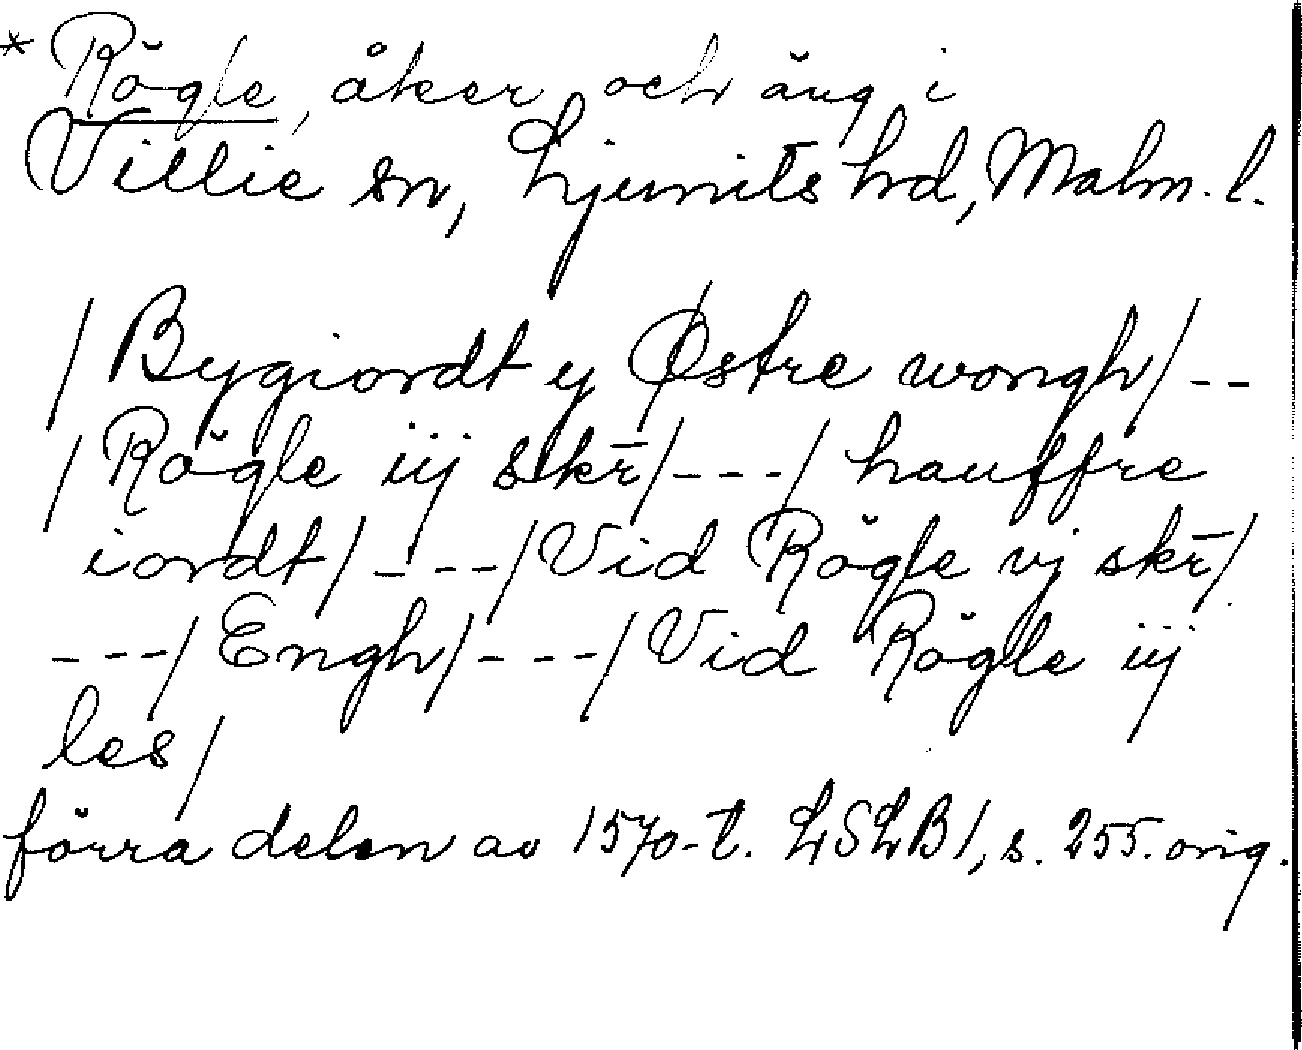 * Rögle, åker och äng i
Villie sn, Ljunits hd, Malm. l.
/ Bygiordt y Østre wongh / --
/ Rögle iij skr̄ / --- / hauffre
iordt / --- / Vid Rögle vj skr̄ /
--- / Engh / --- / Vid Rögle iij
les /
förra delen av 1570-t. LSLB 1, s. 255. orig.